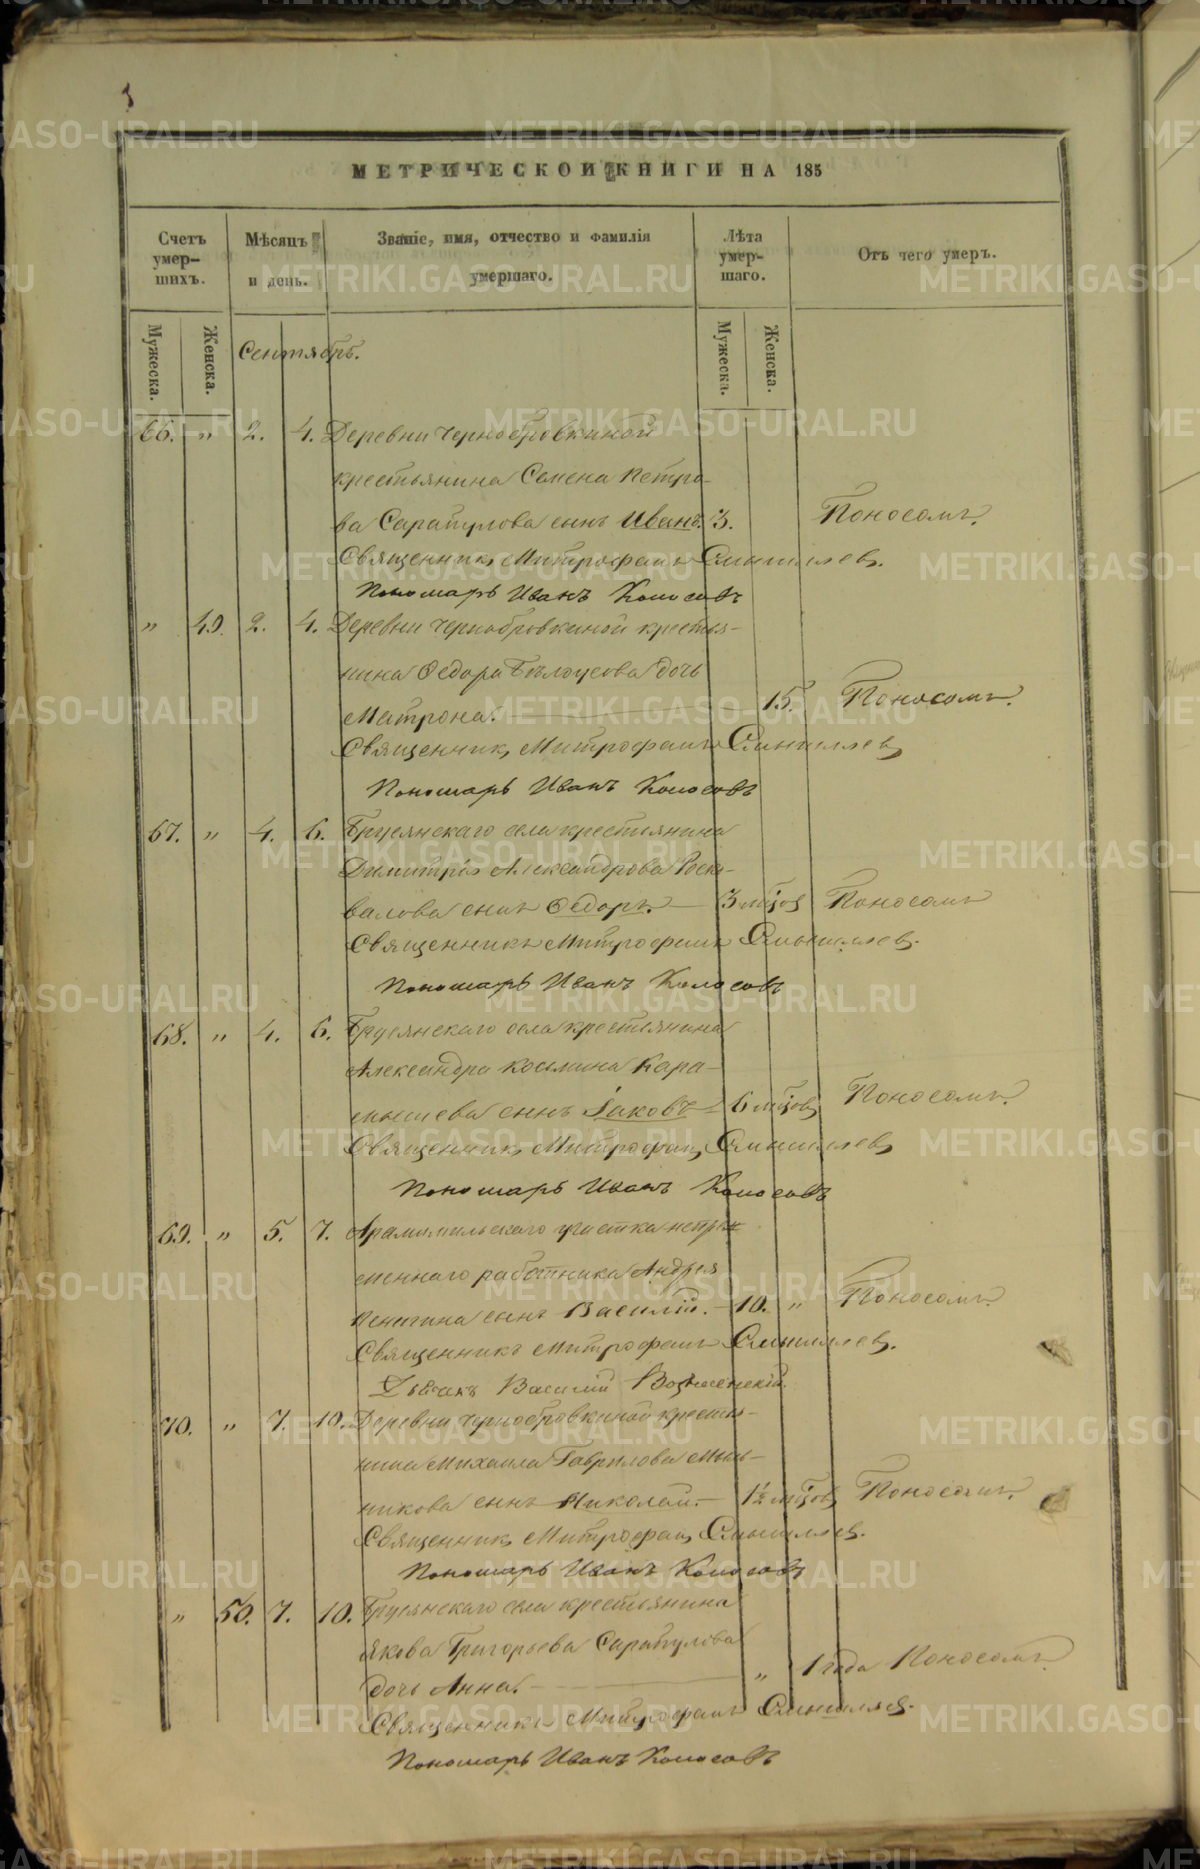 МЕТРИЧЕСКОЙ КНИГИ НА 185
Счетъ умер-шихъ.
Мѣсяцъ и день.
Званіе, имя, отчество и фамилія умершаго.
Лѣта умер-шаго.
Отъ чего умеръ.
Мужеска.
Женска.
Мужеска.
Женска.
Сентябрь.
66. " 2. 4. Деревни Чернобровкиной
крестьянина Семена Петро-
ва Сарапулова сынъ Иванъ. 3. Поносомъ.
Священникъ Митрофанъ
Пономарь Иванъ Колосовъ
" 49. 2. 4. Деревни Чернобровкиной крестья-
нина Ѳедора Бѣлоусова дочь
Матрона. 15. Поносомъ.
Священникъ Митрофанъ
Пономарь Иванъ Колосовъ
67. " 4. 6. Брусянскаго села крестьянина
Димитрія Александрова
сынъ Ѳедоръ. 3 мѣсяц. Поносомъ
Священникъ Митрофанъ
Пономарь Иванъ Колосовъ
68. " 4. 6. Брусянскаго села крестьянина
Александра Косьмина Кара-
мышева сынъ Іаковъ 6 мѣсяцов Поносомъ.
Священникъ Митрофанъ
Пономарь Иванъ Колосовъ
69. " 5. 7. Арамильскаго участка непре-
меннаго работника Андрея
сынъ Василій. 10. " Поносомъ.
Священникъ Митрофанъ
Дьячекъ Василій Вознесенскій
70. " 7. 10. Деревни Чернобровкиной крестья-
нина Михаила Гаврилова Мыль-
никова сынъ Николай. 1½ мѣсяцов Поносомъ.
Священникъ Митрофанъ
Пономарь Иванъ Колосовъ
" 50. 7. 10. Брусянскаго села крестьянина
Якова Григорьева Сарапулова
дочь Анна. " 1 года Поносомъ.
Священникъ Митрофанъ
Пономарь Иванъ Колосовъ
METRIKI.GASO-URAL.RU